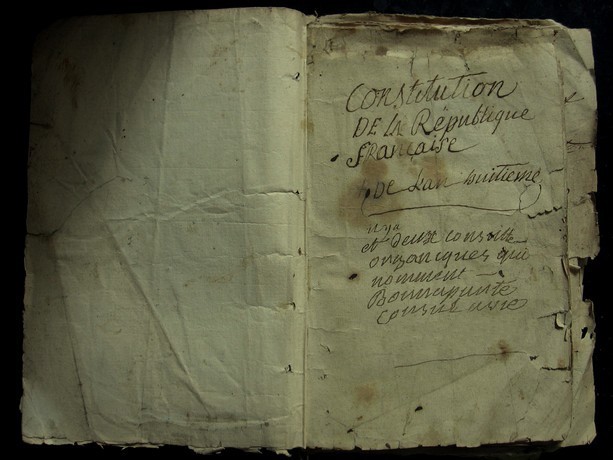 Constitution
DE la République
française
De l'an huitieme
il y a
et deux consulte
organiques qui
nomment
Bonnaparte
consul